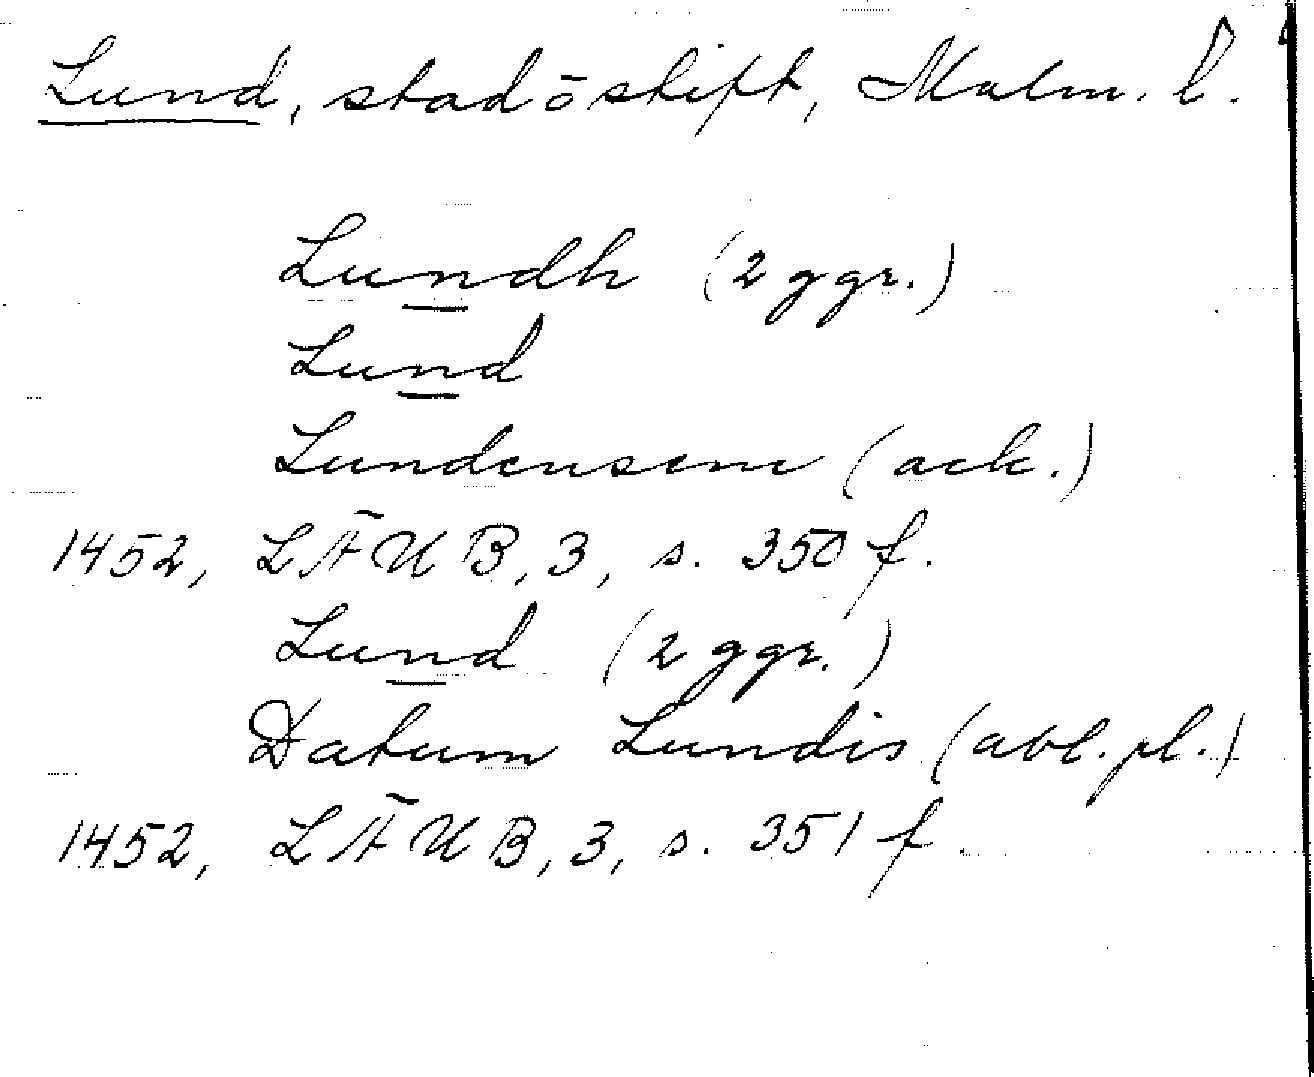 Lund, stad ō stift, Malm. l.
Lundh (2 ggr.)
Lund
Lundensem (ack.)
1452, LÄUB, 3, s. 350 f.
Lund (2 ggr.)
Datum Lundis (abl. pl.)
1452, LÄUB, 3, s. 351 f.